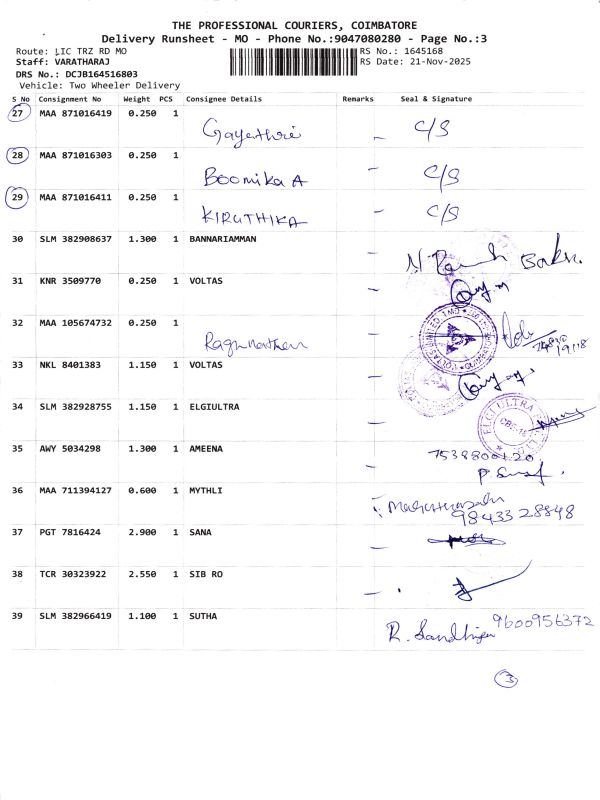 THE PROFESSIONAL COURIERS, COIMBATORE
Delivery Runsheet - MO - Phone No.:9047080280 - Page No.:3
Route: LIC TRZ RD MO
RS No.: 1645168
Staff: VARATHARAJ
RS Date: 21-Nov-2025
DRS No.: DCJB164516803
Vehicle: Two Wheeler Delivery
S No Consignment No Weight PCS Consignee Details Remarks Seal & Signature
27 MAA 871016419 0.250 1
Gayathri - C/S
28 MAA 871016303 0.250 1
Boomika A - C/S
29 MAA 871016411 0.250 1
KIRUTHIKA - C/S
30 SLM 382908637 1.300 1 BANNARIAMMAN
31 KNR 3509770 0.250 1 VOLTAS
32 MAA 105674732 0.250 1
VOLTAS LIMITED
33 NKL 8401383 1.150 1 VOLTAS
34 SLM 382928755 1.150 1 ELGIULTRA
ELGI ULTRA
35 AWY 5034298 1.300 1 AMEENA
7538800120
36 MAA 711394127 0.600 1 MYTHLI
98433 28848
37 PGT 7816424 2.900 1 SANA
38 TCR 30323922 2.550 1 SIB RO
39 SLM 382966419 1.100 1 SUTHA
9600956372
3